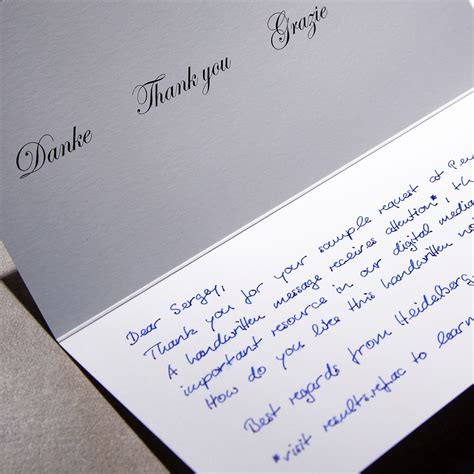 Danke
Thank you
Grazie
Dear Sergey,
Thank you for your sample request at
A handwritten message receives attention*,
important resource in our digital media
How do you like this handwritten
Best regards from Heidelberg,
*visit results.refac to learn